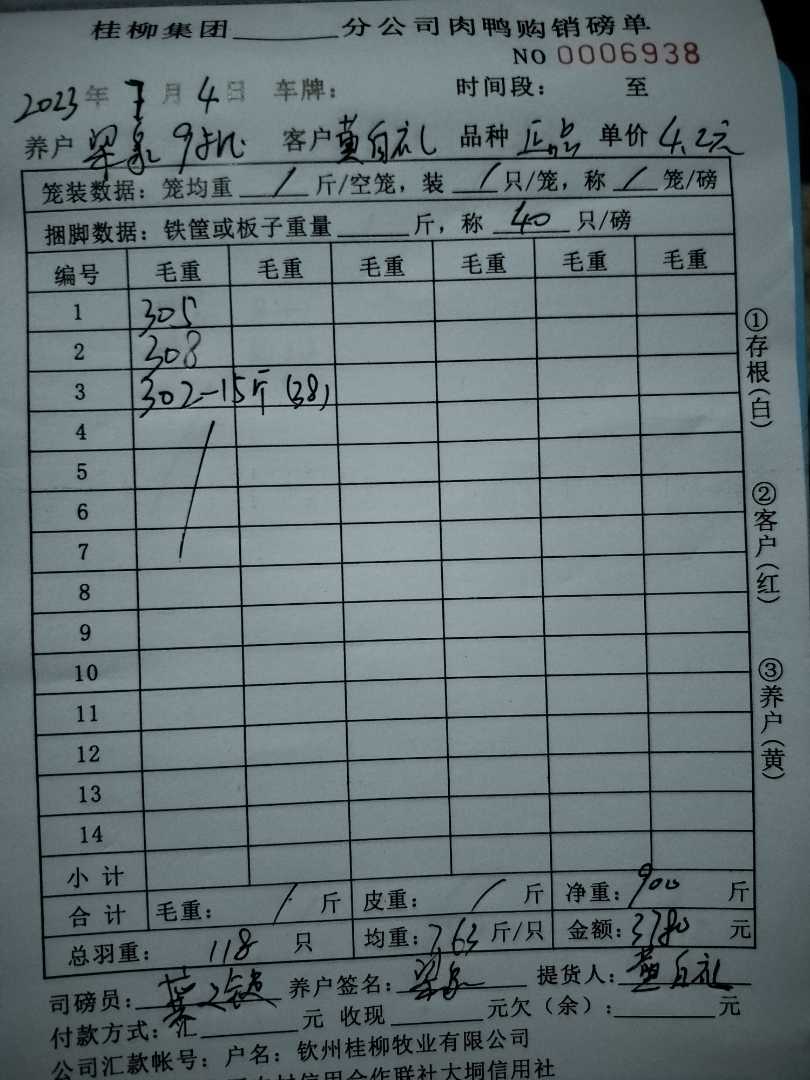 桂柳集团______分公司肉鸭购销磅单
NO 0006938
2023年 7月 4日 车牌： 时间段： 至
养户 梁泉 客户 黄自礼 品种 正品 单价 4.2元
笼装数据：笼均重 / 斤/空笼，装 / 只/笼，称 / 笼/磅
捆脚数据：铁筐或板子重量______斤，称 40 只/磅
编号 毛重 毛重 毛重 毛重 毛重 毛重
1 305
2 308
3 302-15斤(38)
4
5
6
7
8
9
10
11
12
13
14
小计
合计 毛重： / 斤 皮重： / 斤 净重：900 斤
总羽重： 118 只 均重：7.63 斤/只 金额：3780 元
司磅员： 养户签名：梁泉 提货人：黄自礼
付款方式：汇______元 收现______元欠（余）：______元
公司汇款帐号：户名：钦州桂柳牧业有限公司
村信用合作联社大垌信用社
①存根(白)
②客户(红)
③养户(黄)